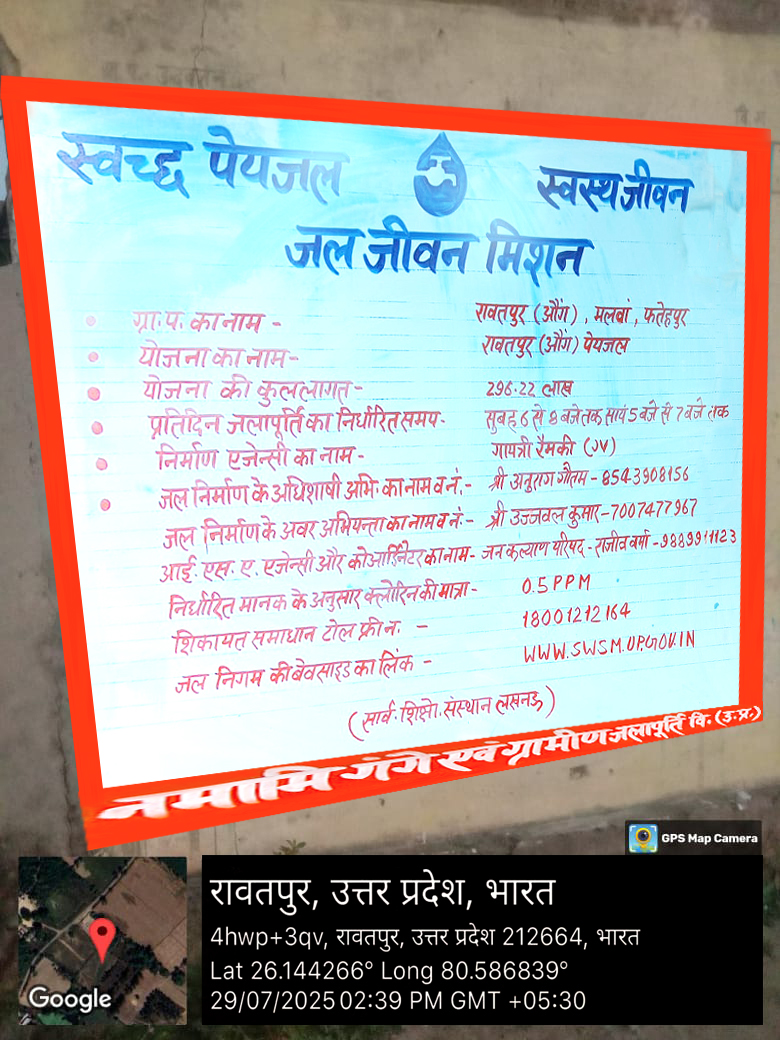 स्वच्छ पेयजल स्वस्थ जीवन
जल जीवन मिशन
ग्रा.प. का नाम - रावतपुर (औंग), मलवां, फतेहपुर
योजना का नाम - रावतपुर (औंग) पेयजल
योजना की कुल लागत - 296.22 लाख
प्रतिदिन जलापूर्ति का निर्धारित समय - सुबह 6 से 8 बजे तक सायं 5 बजे से 7 बजे तक
निर्माण एजेन्सी का नाम - गायत्री रैमकी (JV)
जल निर्माण के अधिशाषी अभि. का नाम व नं. - श्री अनुराग गौतम - 8543908156
जल निर्माण के अवर अभियन्ता का नाम व नं. - श्री उज्जवल कुमार - 7007477967
आई. एस. ए. एजेन्सी और कोआर्डिनेटर का नाम - जन कल्याण परिषद - राजीव वर्मा - 9889911123
निर्धारित मानक के अनुसार क्लोरिन की मात्रा - 0.5 PPM
शिकायत समाधान टोल फ्री नं. - 18001212164
जल निगम की बेवसाइड का लिंक - WWW.SWSM.UP.GOV.IN
(सार्व. शिक्षो. संस्थान लखनऊ)
नमामि गंगे एवं ग्रामीण जलापूर्ति वि. (उ.प्र.)
GPS Map Camera
रावतपुर, उत्तर प्रदेश, भारत
4hwp+3qv, रावतपुर, उत्तर प्रदेश 212664, भारत
Lat 26.144266° Long 80.586839°
29/07/2025 02:39 PM GMT +05:30
Google